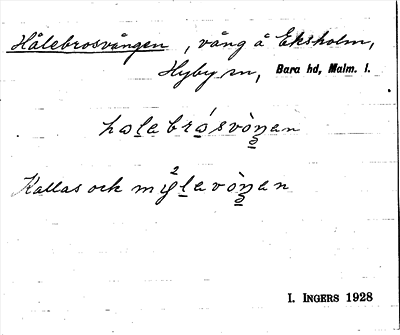 Hålebrosvången, vång å Eksholm,
Hyby sn, Bara hd, Malm. l.
halebrósvòŋan
Kallas och mylavòŋan
I. INGERS 1928